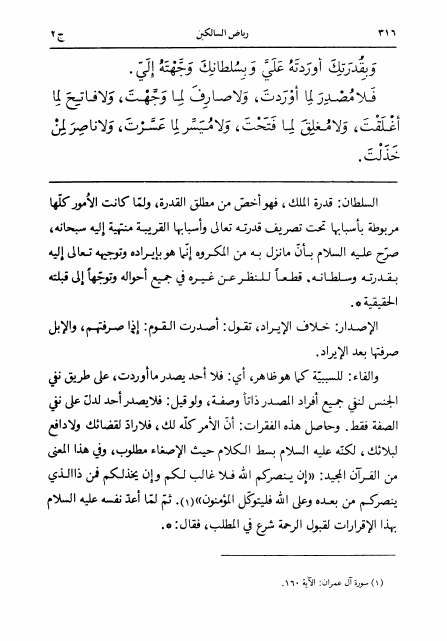 ٣١٦ رياض السالكين ج٢
وَبِقُدرَتِكَ أَورَدتَهُ عَلَيَّ وَبِسُلطانِكَ وَجَّهتَهُ إِلَيّ.
فَلا مُصْدِرَ لِما أَوْرَدتَ، وَلا صارِفَ لِما وَجَّهتَ، وَلا فاتِحَ لِما
أَغْلَقْتَ، وَلا مُغلِقَ لِما فَتَحْتَ، وَلا مُيَسِّرَ لِما عَسَّرْتَ، وَلا ناصِرَ لِمَنْ
خَذَلْتَ.
السلطان: قدرة الملك، فهو أخصّ من مطلق القدرة، ولمّا كانت الأمور كلّها
مربوطة بأسبابها تحت تصريف قدرته تعالى وأسبابها القريبة منتهية إليه سبحانه،
صرّح عليه السلام بأنّ مانزل به من المكروه إنّما هو بإيراده وتوجيهه تعالى إليه
بقدرته وسلطانه، قطعاً للنظر عن غيره في جميع أحواله وتوجّهاً إلى قبلته
الحقيقية *.
الإصدار: خلاف الإيراد، تقول: أصدرت القوم: إذا صرفتهم، والإبل
صرفتها بعد الإيراد.
والفاء: للسببيّة كما هو ظاهر، أي: فلا أحد يصدر ما أوردت، على طريق نفي
الجنس لنفي جميع أفراد المصدر ذاتاً وصفة، ولو قيل: فلا يصدر أحد لدلّ على نفي
الصفة فقط. وحاصل هذه الفقرات: أنّ الأمر كلّه لك، فلا رادّ لقضائك ولا دافع
لبلائك، لكنّه عليه السلام بسط الكلام حيث الإصغاء مطلوب، وفي هذا المعنى
من القرآن المجيد: «إن ينصركم الله فلا غالب لكم وإن يخذلكم فمن ذا الذي
ينصركم من بعده وعلى الله فليتوكّل المؤمنون»(١). ثمّ لمّا أعدّ نفسه عليه السلام
بهذا الإقرارات لقبول الرحمة شرع في المطلب، فقال: *.
(١) سورة آل عمران: الآية ١٦٠.